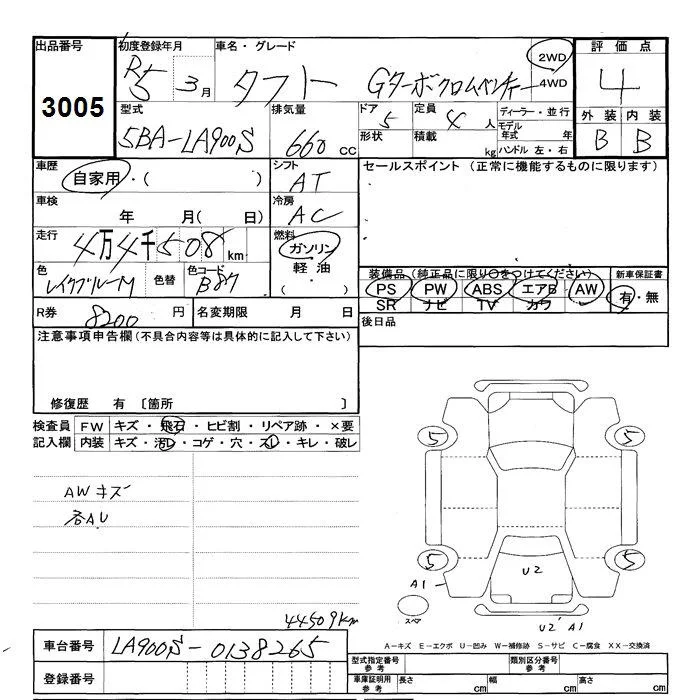 出品番号 初度登録年月 車名・グレード 評価点
3005 R5 3月 タフト Gターボクロムベンチャー 2WD 4WD 4
型式 排気量 ドア 定員 ディーラー・並行 外装 内装
5BA-LA900S 660cc 5 4人 モデル年式 年 B B
形状 積載 kg ハンドル 左・右
車歴 自家用・( ) シフト AT セールスポイント (正常に機能するものに限ります)
車検 年 月( 日) 冷房 AC
走行 4万4千508km 燃料 ガソリン
軽油
( ・ )
色 レイクブルーM 色替 色コード B87
装備品(純正品に限り○をつけてください) 新車保証書
PS PW ABS エアB AW 有・無
SR ナビ TV カワ
R券 8200円 名変期限 月 日 後日品
注意事項申告欄(不具合内容等は具体的に記入して下さい)
修復歴 有 〔箇所 〕
検査員 FW キズ・飛石・ヒビ割・リペア跡・×要
記入欄 内装 キズ・汚レ・コゲ・穴・スレ・キレ・破レ
AWキズ
各AU
5 5
5 5
U2
A1
スペア
U2 A1
44509km
A-キズ E-エクボ U-凹み W-補修跡 S-サビ C-腐食 XX-交換済
車台番号 LA900S-0138265
型式指定番号 参考 類別区分番号 参考
登録番号 車庫証明用 参考 長さ cm 幅 cm 高さ cm